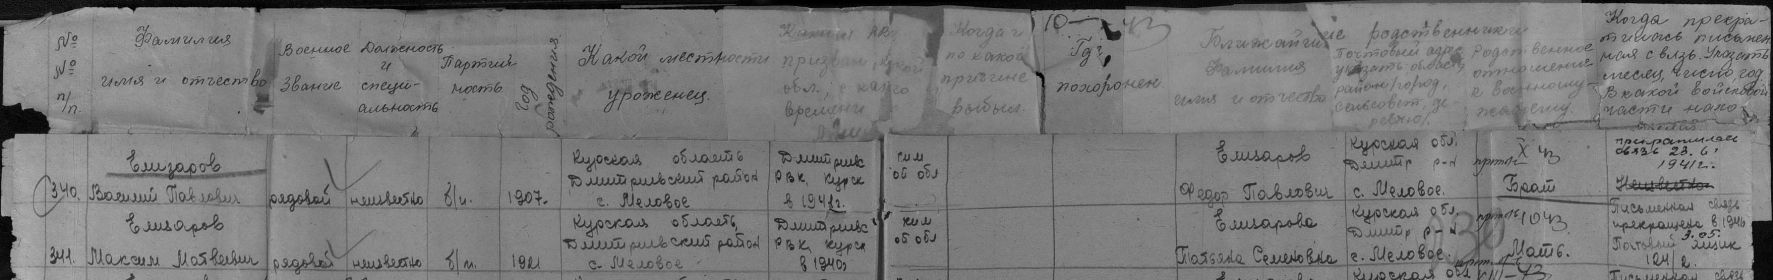 №№ п/п.
Фамилия имя и отчество
Военное звание
Должность и специальность
Партийность
Год рождения
Какой местности уроженец.
Каким РВК призван, какой обл., с какого времени
Когда и по какой причине выбыл.
10 43
Где похоронен
Ближайшие родственники
Фамилия имя и отчество
Почтовый адрес указать область, район, город, сельсовет, деревню.
Родственное отношение к военнослужащему.
Когда прекратилась письменная связь. Указать месяц, число, год. В какой войсковой части нахо-
340. Елизаров Василий Павлович
рядовой
неизвестно
б/п.
1907.
Курская область Дмитриевский район с. Меловое
Дмитриевс РВК, Курск в 1941г.
ким ой обл
Елизаров Федор Павлович
Курская обл. Дмитр р-н с. Меловое.
X 43
Брат
прекратилась связь 23. 6. 1941г.
Неизвестно
341. Елизаров Максим Матвеевич
рядовой
неизвестно
б/п.
1921
Курская область, Дмитриевский район с. Меловое
Дмитриевс РВК, Курск в 1940г
ким ой обл
Елизарова Татьяна Семеновна
Курская обл. Дмитр р-н с. Меловое.
10 43
Мать.
Письменная связь прекращена в 1941г
3.05.
Почтовый ящик
124/2.
Курская обл
XII-43
Письменная связь